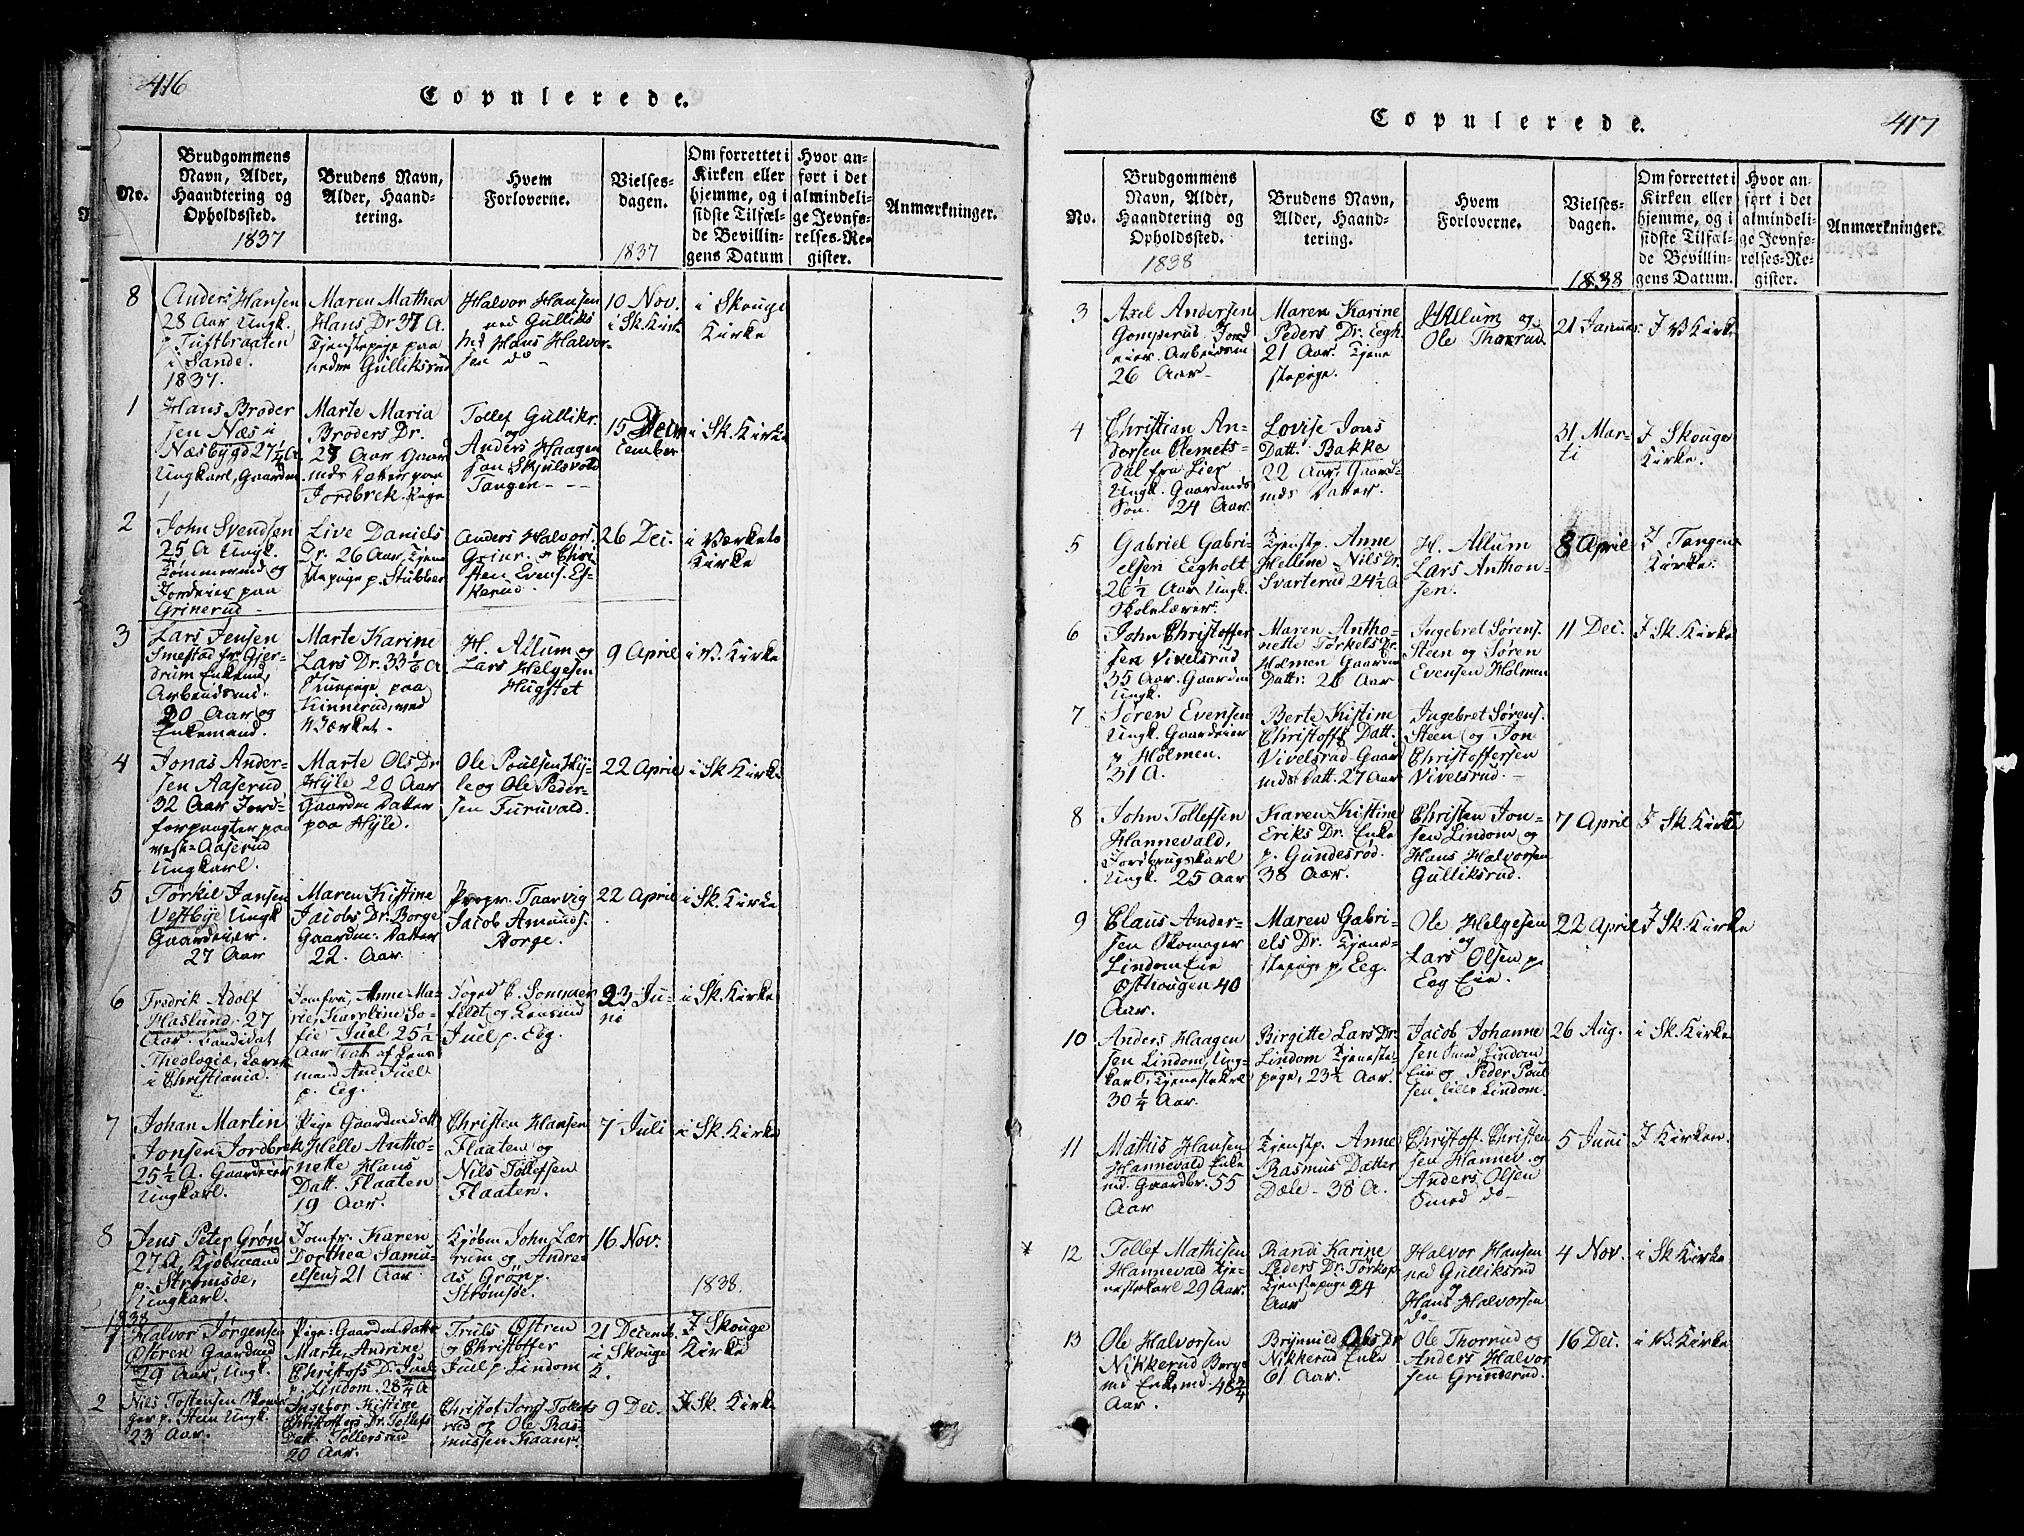 416
Copulerede.
No.
Brudgommens
Navn, Alder,
Haandtering og
Opholdssted.
1837
Brudens Navn,
Alder, Haand-
tering.
Hvem
Forloverne.
Vielses-
dagen.
1837
Om forrettet i
Kirken eller
hjemme, og i
sidste Tilfæl-
de Bevillin-
gens Datum
Hvor an-
ført i det
almindeli-
ge Jevnfø-
relses-Re-
gister.
Anmærkninger.
8
Anders Hansen
28 Aar Ungk.
p. Tuftbraaten
i Sande.
1837.
Maren Mathea
Hans Dr. 37 A.
Tjenstepige paa
nedre Gulliksrud
Halvor Hansen
ned Gulliks
Hans Halvor-
sen do -
10 Nov.
i Sk. Kirke
i Skouge
Kirke
1
Hans Broder
sen Næs i
Næsbygd 27¼ A
Ungkarl, Gaardm
Marte Maria
Broders Dr.
27 Aar Gaar
mds Datter paa
Jordbrek. Pige
Tollef Gullikr.
og
Anders Haagen
san Skjulsvold
Tangen - - -
15 Decim
cember
i Sk. Kirke
2
John Svendsen
25 A Ungk.
Tømmermd og
Jordeier paa
Grinerud
Live Daniels
Dr. 26 Aar Tjene
stepige p. Stubber
Anders Halvors.
Griner. og Chri
sten Evens. Es-
kerud.
26 Dec.
i Værkets
Kirke
3
Lars Jensen
Smestad fr Gjer-
drum Enkemd,
Arbeidsmd.
30 Aar og
Enkemand.
Marte Karine
Lars Dr. 33 A
paa
Kinnerud, ved
Værket.
H. Allum og
Lars Helgesen
Hugstet
9 April
i V. Kirke
4
Jonas Ander-
sen Aaserud
32 Aar Jord-
forpagter paa
vest-Aaserud
Ungkarl.
Marte Ols Dr
Hyle 20 Aar
Gaardm Datter
paa Hyle.
Ole Poulsen Hy-
le og Ole Peder-
sen Furuvald.
22 April
i Sk Kirke
5
Tørkil Jansen
Vestbye, Ungk
Gaardeier.
27 Aar
Maren Kistine
Jacobs Dr. Borge
Gaardm: Datter
22. Aar
Propr. Taarvig
Jacob Amunds.
Borge.
22 April
i Sk. Kirke
6
Fredrik Adolf
Haslund. 27
Aar. Candidat
Theologiæ, Lærer
i Christiania.
Jomfru, Anne Ma-
rie Karoline So-
fie Juel 25½
Aar Dat. af Lens
mand And Juel
p. Eeg.
Foged C. Sommer
feldt og Lensmd
Juel p. Eeg.
23 Ju-
ni
i Sk. Kirke
7
Johan Martin
Jonsen Jordbrek
25½ A. Gaardeier
Ungkarl.
Pige Gaardm Datt
Helle Antho-
nette Hans
Datt. Flaaten
19 Aar
Christen Hansen
Flaaten og
Nils Tollefsen
Flaaten.
7 Juli
i Sk. Kirke
8
Jens Peter Grøn
27 A, Kjøbmand
p. Strømsøe,
Ungkarl.
Jomfr. Karen
Dorthea Samu-
elsen, 21 Aar
Kjøbm John Lær
um og Andre-
as Grøn p.
Strømsøe.
16 Nov.
1838.
1838
1
Halvor Jørgensen
Østeren Gaardmd
29 Aar, Ungk.
Pige: Gaardm Datte
Marte Andrine
Christofs Dr. Juel
p. Lindom. 28¾ A
Truls Østren
og Christoffer
Juul p. Lindom
21 Decemb.
i Skouge
K.
I Skouge
Kirke
2
Nils Tostensen Skoma
ger p. Steen Ungk.
23 Aar.
Ingebor Kistine
Christoffers Dr.
Datt. Tollersrud
20 Aar.
Christof Jons. Tollefs
rud og Ole Ras-
mussen Kaanr.
9 Dec.
I Sk. Kirke
417
Copulerede.
No.
Brudgommens
Navn, Alder,
Haandtering og
Opholdssted.
1838
Brudens Navn,
Alder, Haand-
tering.
Hvem
Forloverne.
Vielses-
dagen.
1838
Om forrettet i
Kirken eller
hjemme, og i
sidste Tilfæl-
de Bevillin-
gens Datum.
Hvor an-
ført i det
almindeli-
ge Jevnfø-
relses-Re-
gister.
Anmærkninger.
3
Axel Andersen
Gomperud Jord
eier. Arbeidsm
26 Aar -
Maren Karine
Peders Dr. Eegh.
21 Aar. Tjene
stepige.
H Allum og
Ole Thorrud
21 Januar.
I V Kirke
4
Christian An-
dersen Clemets-
dal fra Lier
Ungk. Gaardmds
Søn. 24 Aar.
Lovise Jons
Datt. Bakke
22 Aar, Gaard-
mds Datter.
31 Mar-
ti
I Skouge
Kirke.
5
Gabriel Gabri-
elsen Eegholt
26½ Aar Ungk.
Skolelærer.
Tjenstp. Anne
Helline Nils Dr.
Svarterud 24½ A
H. Allum
Lars Anthon-
sen.
8 April
I Tangens
Kirke.
6
John Christoffer
sen Vivelsrud
35 Aar. Gaardm
Ungk.
Maren Antho-
nette Tørkels Dr.
Holmen Gaardm
Dattr. 26 Aar
Ingebret Sørens.
Steen og Søren
Evensen Holmen
11 Dec.
I Sk. Kirke
7
Søren Evensen
Ungk. Gaardeier
p Holmen.
31 A.
Berte Kistine
Christoffs Datt.
Vivelsrud Gaar
mds Datt. 27 Aar
Ingebret Sørens.
Steen og Jon
Christoffersen
Vivelsrud. -
8
John Tollefsen
Hannevald,
Jordbrugskarl
Ungk. 25 Aar
Karen Kistine
Eriks Dr. Enke
p. Gundesrød.
38 Aar.
Christen Jon-
sen Lindom og
Hans Halvorsen
Gulliksrud.
7 April
I Sk. Kirke
9
Claus Ander-
sen Skomager
Lindom Eie
Østhougen 40
Aar.
Maren Gabri-
els Dr. Tjene-
stepige p. Eeg.
Ole Helgesen
og
Lars Olsen p.
Eeg Eie.
22 April
I Sk. Kirke
10
Anders Haagen
sen Lindom, Ung-
karl, Tjenestekarl
30¼ Aar.
Birgitte Lars Dr.
Lindom Tjeneste
pige, 23½ Aar.
Jacob Johanne
sen Smed Lindom
Eie og Peder Poul
sen lille Lindom.
26 Aug.
i Sk. Kirke
11
Mathis Hansen
Hannevald Enke
md. Gaardbr. 55
Aar
Tjenstp. Anne
Rasmus Datter
Dæle - 38 A.
Christoff. Christen
sen Hannev. og
Anders Olsen
Smed do -
5 Juni
I Kirken.
12
Tollef Mathisen
Hannevald Tje-
nestekarl 29 Aar.
Randi Karine
Peders Dr. Tørkop
Tjenstepige 24
Aar
Halvor Hansen
ned Gulliksrud
og
Hans Halvorsen
do -
4 Nov.
i Sk Kirke
13
Ole Halvorsen
Nikkerud Berg
md Enkemd. 48¾
Aar.
Brynnild Ols Dr
Nikkerud Enke
61 Aar.
Ole Thorrud og
Anders Halvor
sen Grinserud.
16 Dec.
i V. Kirke